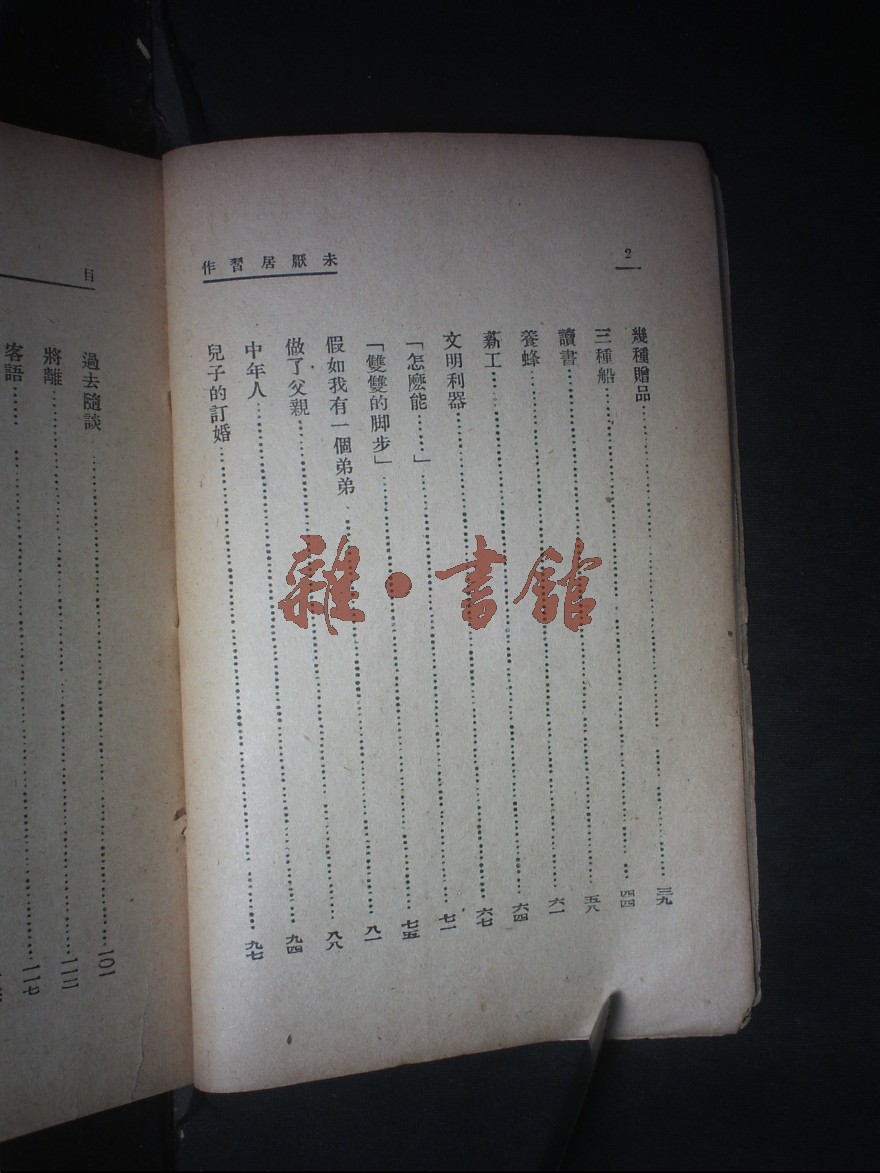 2
未厭居習作
幾種贈品……三九
三種船……四四
讀書……五八
養蜂……六一
薪工……六四
文明利器……六七
「怎麽能……」……七一
「雙雙的脚步」……七五
假如我有一個弟弟……八一
做了父親……八八
中年人……九四
兒子的訂婚……九七
目
過去隨談……一〇一
將離……一一三
客語……一一七
雜·書館